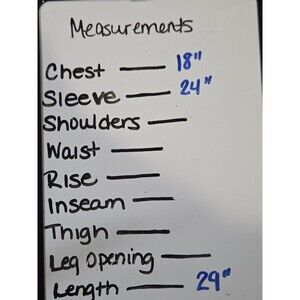 Measurements
Chest — 18"
Sleeve — 24"
Shoulders —
Waist —
Rise —
Inseam —
Thigh —
Leg Opening —
Length — 29"